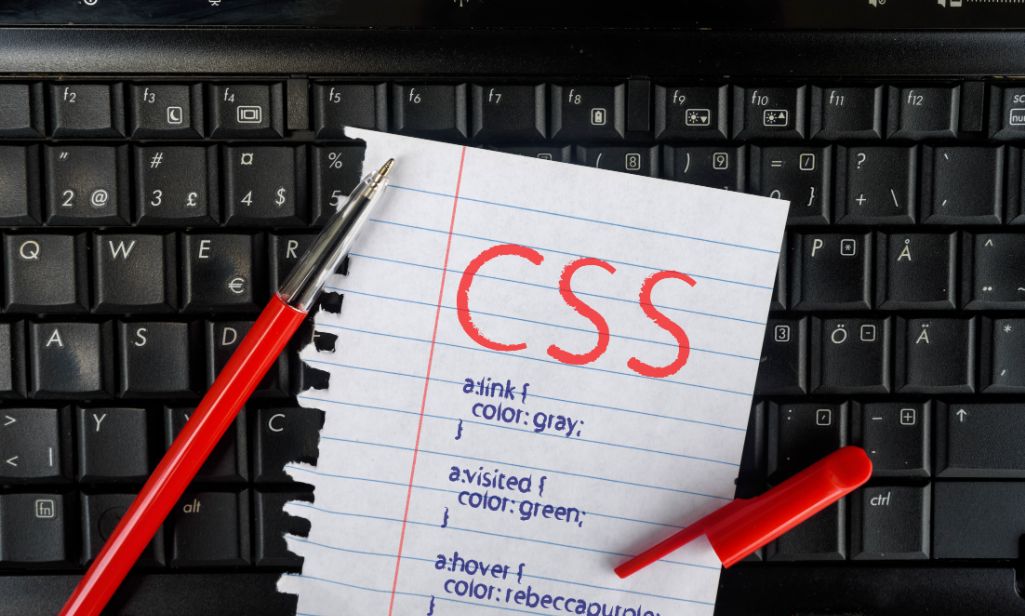 f2 f3 f4 f5 f6 f7 f8 f9 f10 f11 f12
" # ¤ % ( 8 ) 9 = / ? `
2 @ 3 £ 4 $ 5 0 } + \ ´
Q W E R P * Å ^
€ ¨ ~
A S D 3 Ö - Ä *
> Y C : _ + ↑
<
fn alt ctrl
CSS
a:link {
color: gray;
}
a:visited {
color: green;
}
a:hover {
color: rebeccapurple;
}